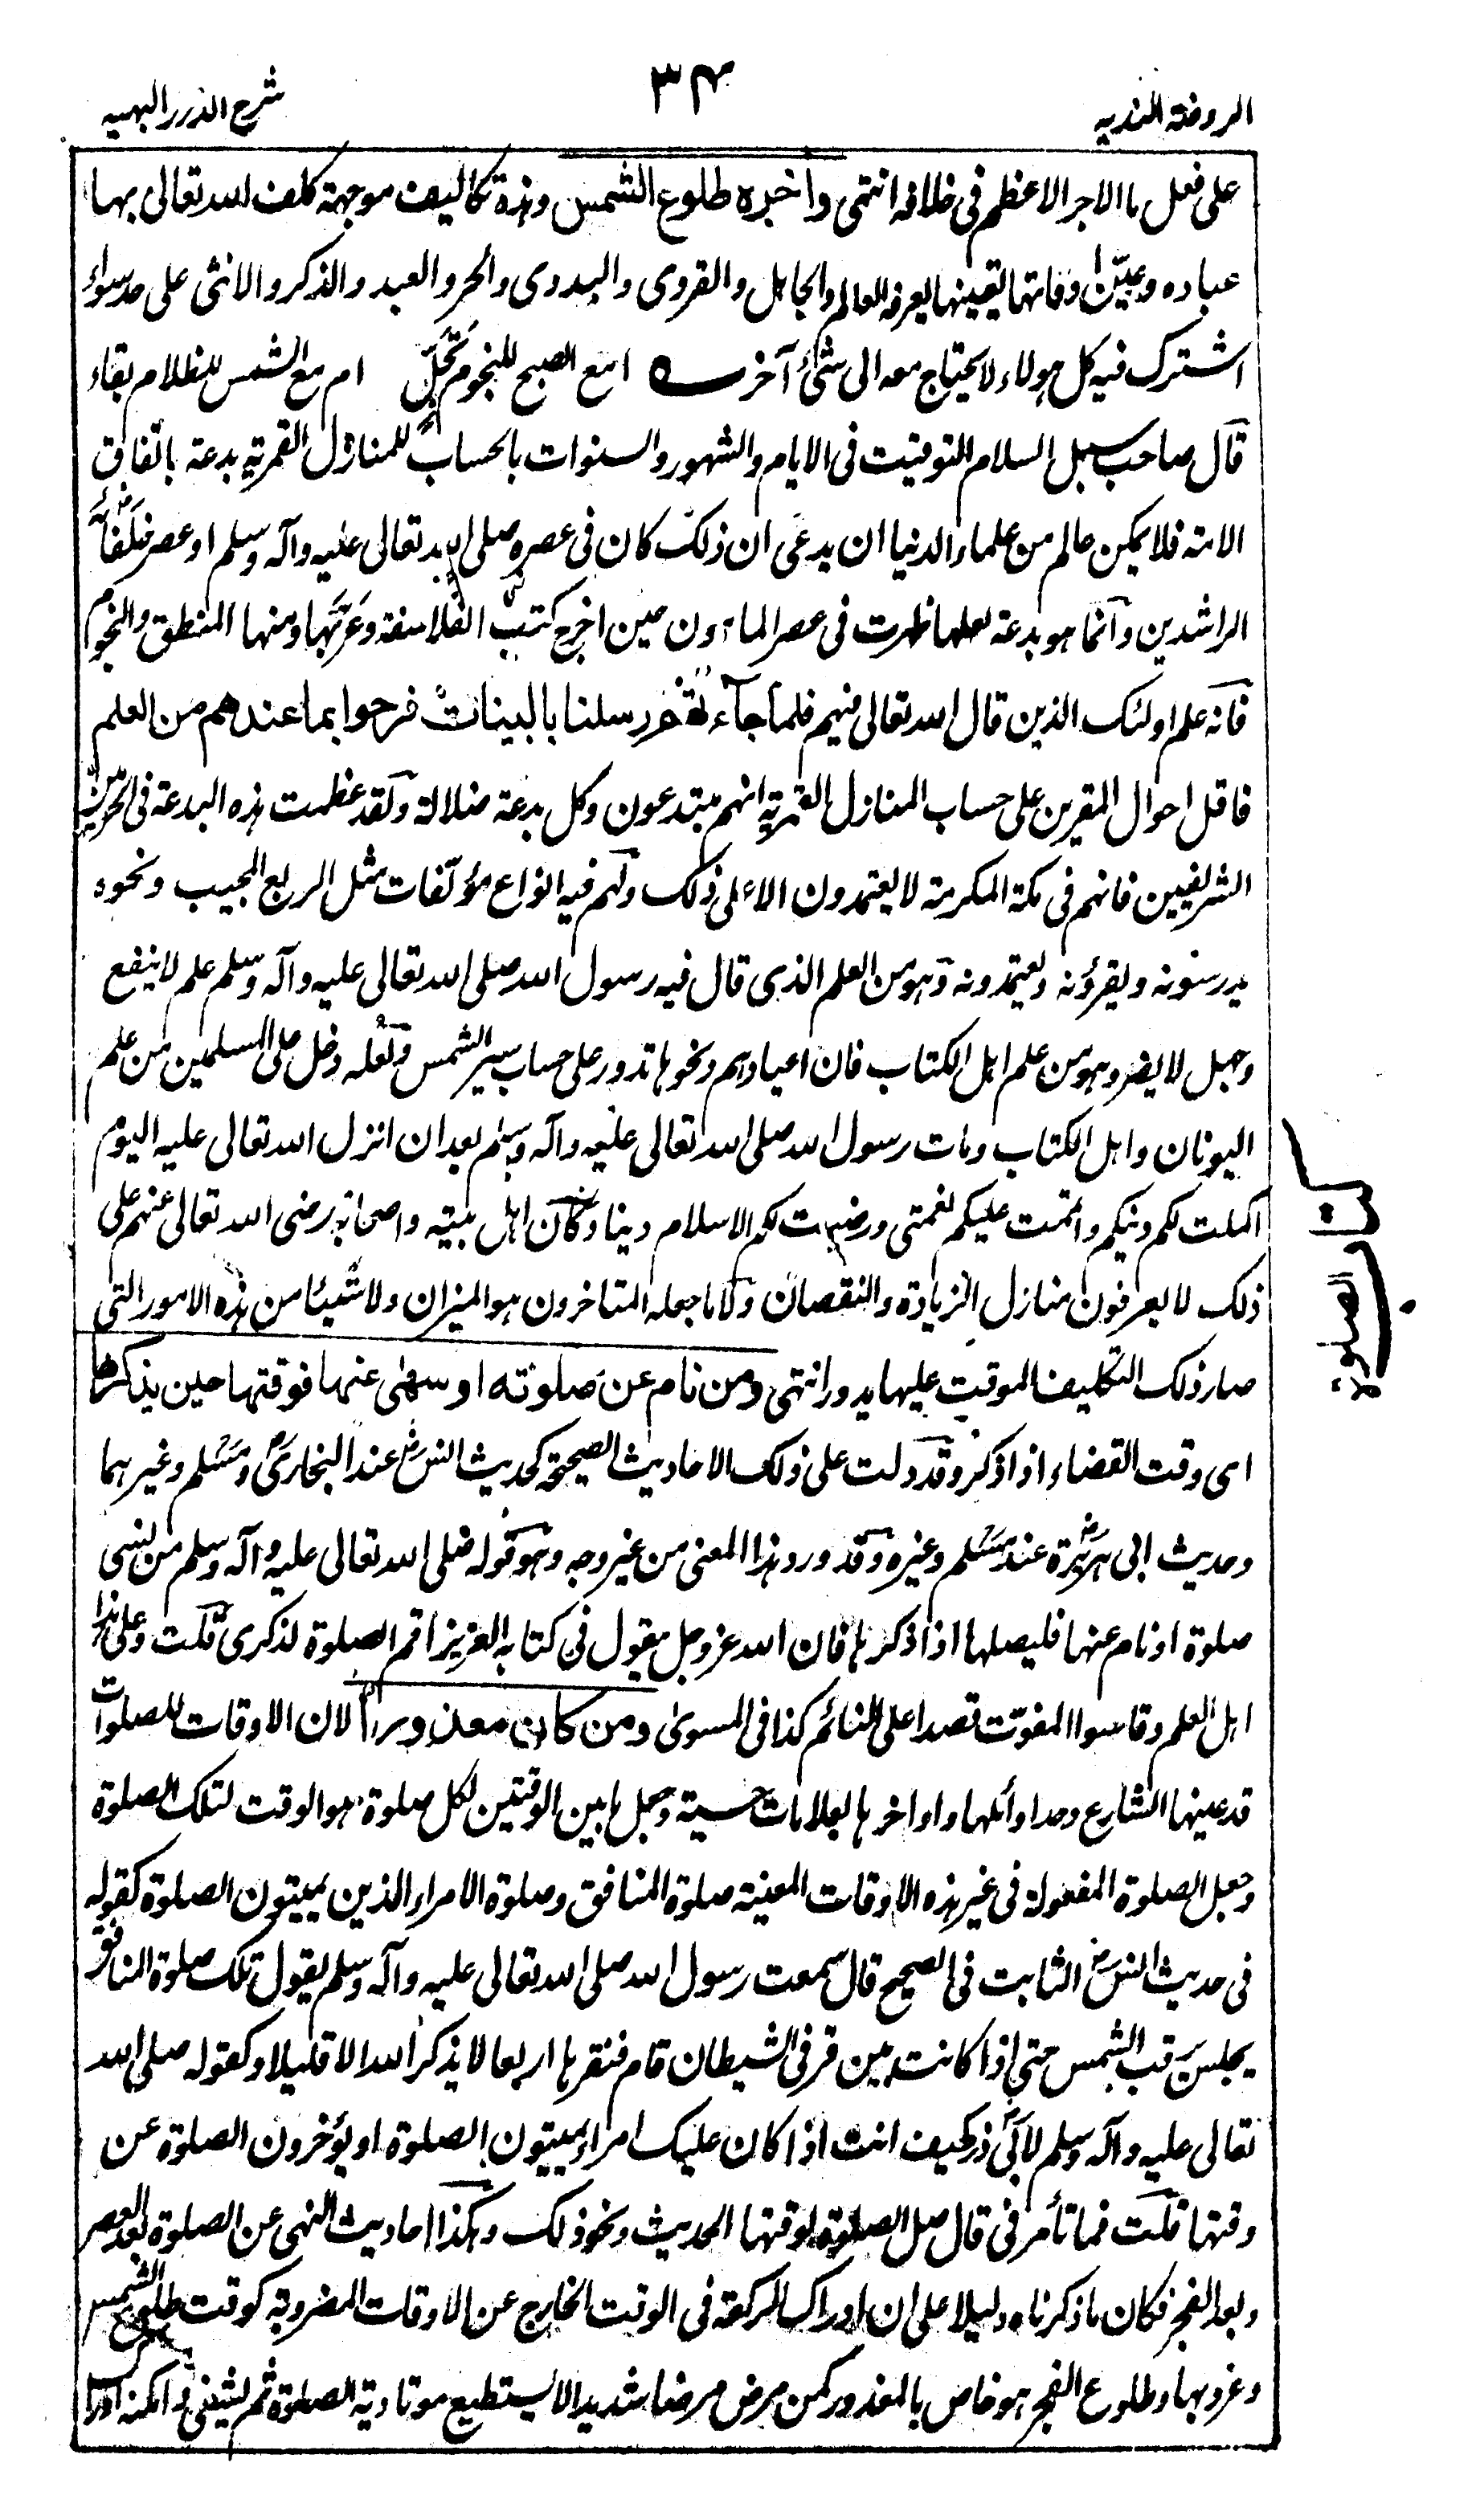 الروضة الندية
٣٤
شرح الدرر البهية
على فعل ما الاجر الاعظم فى خلافه انتهى وآخره طلوع الشمس وهذه تكاليف موجهة كلف الله تعالى بها
عباده وعيّن اوقاتها لتعيينها يعرفه العالم والجاهل والقروى والبدوى والحر والعبد والذكر والانثى على حد سواء
اشترك فيه كل هولاء لا يحتاج معه الى شئ آخر امع الصبح للنجوم تجلّ ام مع الشمس للظلام بقاء
قال صاحب سبل السلام التوقيت فى الايام والشهور والسنوات بالحساب للمنازل القمرية بدعة باتفاق
الامة فلا يمكن عالم من علماء الدنيا ان يدعى ان ذلك كان فى عصره صلى الله تعالى عليه وآله وسلم او عصر خلفائه
الراشدين وانما هو بدعة لعلها ظهرت فى عصر المامون حين اخرج كتب الفلاسفة وعرّبها ومنها المنطق والنجوم
فانه علم اولئك الذين قال الله تعالى فيهم فلما جآءتهم رسلنا بالبينات فرحوا بما عندهم من العلم
فاقل احوال المقرين على حساب المنازل القمرية انهم مبتدعون وكل بدعة ضلالة ولقد عظمت هذه البدعة فى الحرمين
الشريفين فانهم فى مكة المكرمة لا يعتمدون الا على ذلك ولهم فيه انواع مؤلفات مثل الربع المجيب ونحوه
يدرسونه ويقرؤنه ويعتمدونه وهو من العلم الذى قال فيه رسول الله صلى الله تعالى عليه وآله وسلم علم لا ينفع
وجهل لا يضر وهو من علم اهل الكتاب فان اعيادهم ونحوها تدور على حساب سير الشمس ولعله دخل على المسلمين من علم
اليونان واهل الكتاب ومات رسول الله صلى الله تعالى عليه وآله وسلم بعد ان انزل الله تعالى عليه اليوم
اكملت لكم دينكم واتممت عليكم نعمتى ورضيت لكم الاسلام دينا وكان اهل بيته واصحابه رضى الله تعالى عنهم على
ذلك لا يعرفون منازل الزيادة والنقصان ولا ما جعله المتاخرون هو الميزان ولا شيئا من هذه الامور التى
صار ذلك التكليف الموقت عليها يدور انتهى ومن نام عن صلوته او سهى عنها فوقتها حين يذكرها
اى وقت القضاء اذا ذكر وقد دلت على ذلك الاحاديث الصحيحة كحديث انس عند البخارى ومسلم وغيرهما
وحديث ابى هريرة عند مسلم وغيره وقد ورد هذا المعنى من غير وجه وهو قوله صلى الله تعالى عليه وآله وسلم من نسى
صلوة او نام عنها فليصلها اذا ذكرها فان الله عز وجل يقول فى كتابه العزيز اقم الصلوة لذكرى قلت وعلى هذا
اهل العلم وقاسوا المفوّت قصدا على النائم كذا فى المسوى ومن كان معذورا لان الاوقات للصلوات
قد عينها الشارع وحد اوائلها واواخرها بعلامات حسية وجعل ما بين الوقتين لكل صلوة هو الوقت لتلك الصلوة
وجعل الصلوة المفعولة فى غير هذه الاوقات المعينة صلوة المنافق وصلوة الامراء الذين يميتون الصلوة كقوله
فى حديث انس الثابت فى الصحيح قال سمعت رسول الله صلى الله تعالى عليه وآله وسلم يقول تلك صلوة المنافق
يجلس يرقب الشمس حتى اذا كانت بين قرنى الشيطان قام فنقرها اربعا لا يذكر الله الا قليلا وكقوله صلى الله
تعالى عليه وآله وسلم لابى ذر كيف انت اذا كان عليك امراء يميتون الصلوة او يؤخرون الصلوة عن
وقتها قلت فما تأمرنى قال صل الصلوة لوقتها الحديث ونحو ذلك وهكذا احاديث النهى عن الصلوة بعد العصر
وبعد الفجر فكان ما ذكرناه دليلا على ان ادراك الركعة فى الوقت الخارج عن الاوقات المضروبة كوقت طلوع الشمس
وغروبها وطلوع الفجر هو خاص بالمعذور كمن مرض مرضا شديدا لا يستطيع معه تادية الصلوة ثم شفى وامكنه ادراك